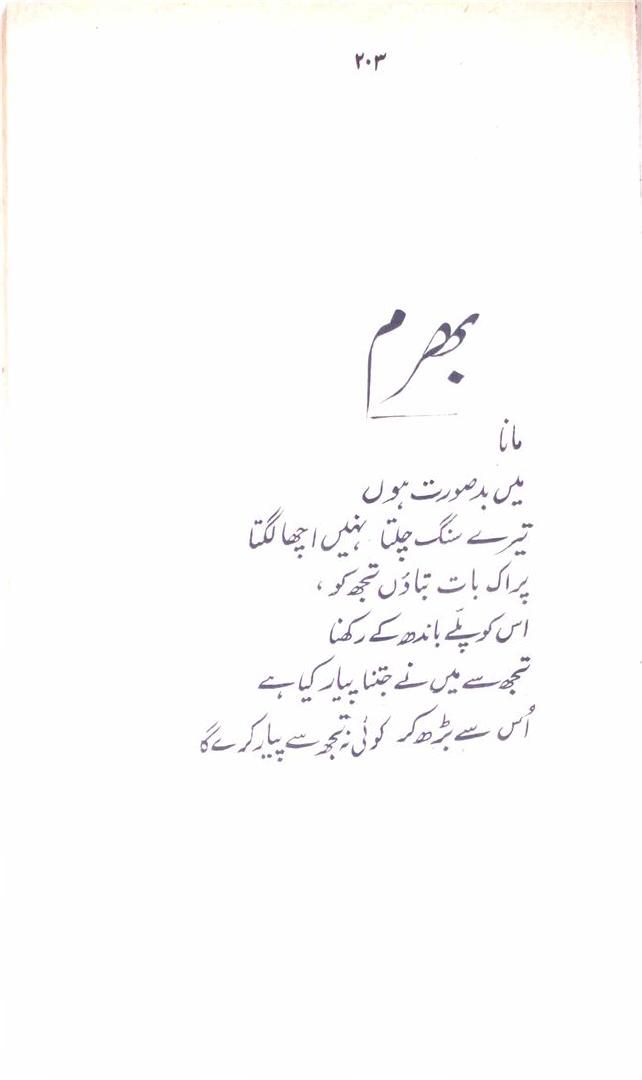 ۲۰۳
بھرم
مانا
میں بدصورت ہوں
تیرے سنگ چلتا نہیں اچھا لگتا
پر اک بات بتاؤں تجھ کو ،
اس کو پلّے باندھ کے رکھنا
تجھ سے میں نے جتنا پیار کیا ہے
اُس سے بڑھ کر کوئی نہ تجھ سے پیار کرے گا